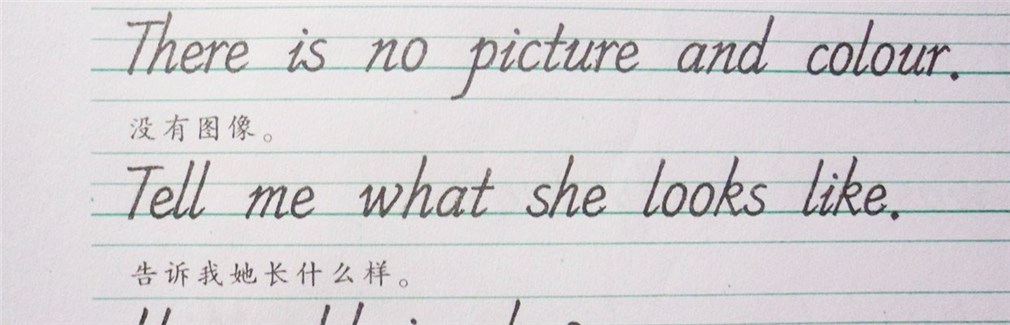 There is no picture and colour.
没有图像。
Tell me what she looks like.
告诉我她长什么样。